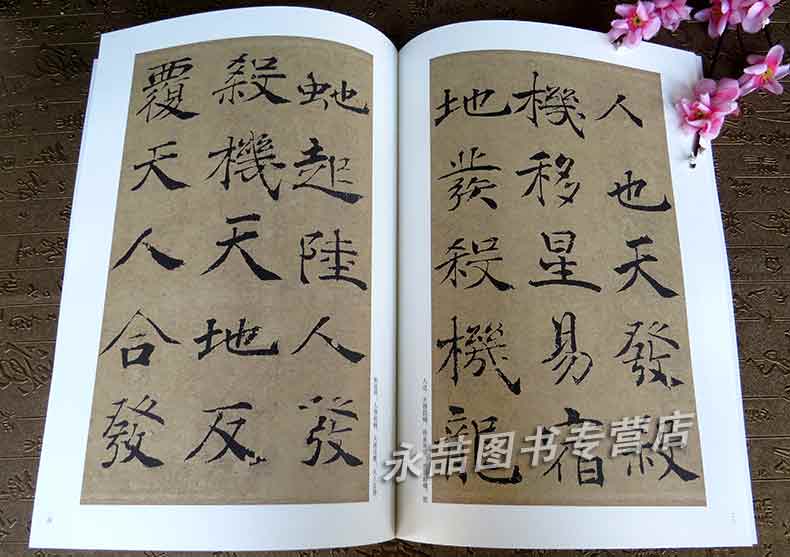 人也天發殺
機移星易宿
地發殺機龍
虵起陸人發
殺機天地反
覆天人合發
永喆图书专营店